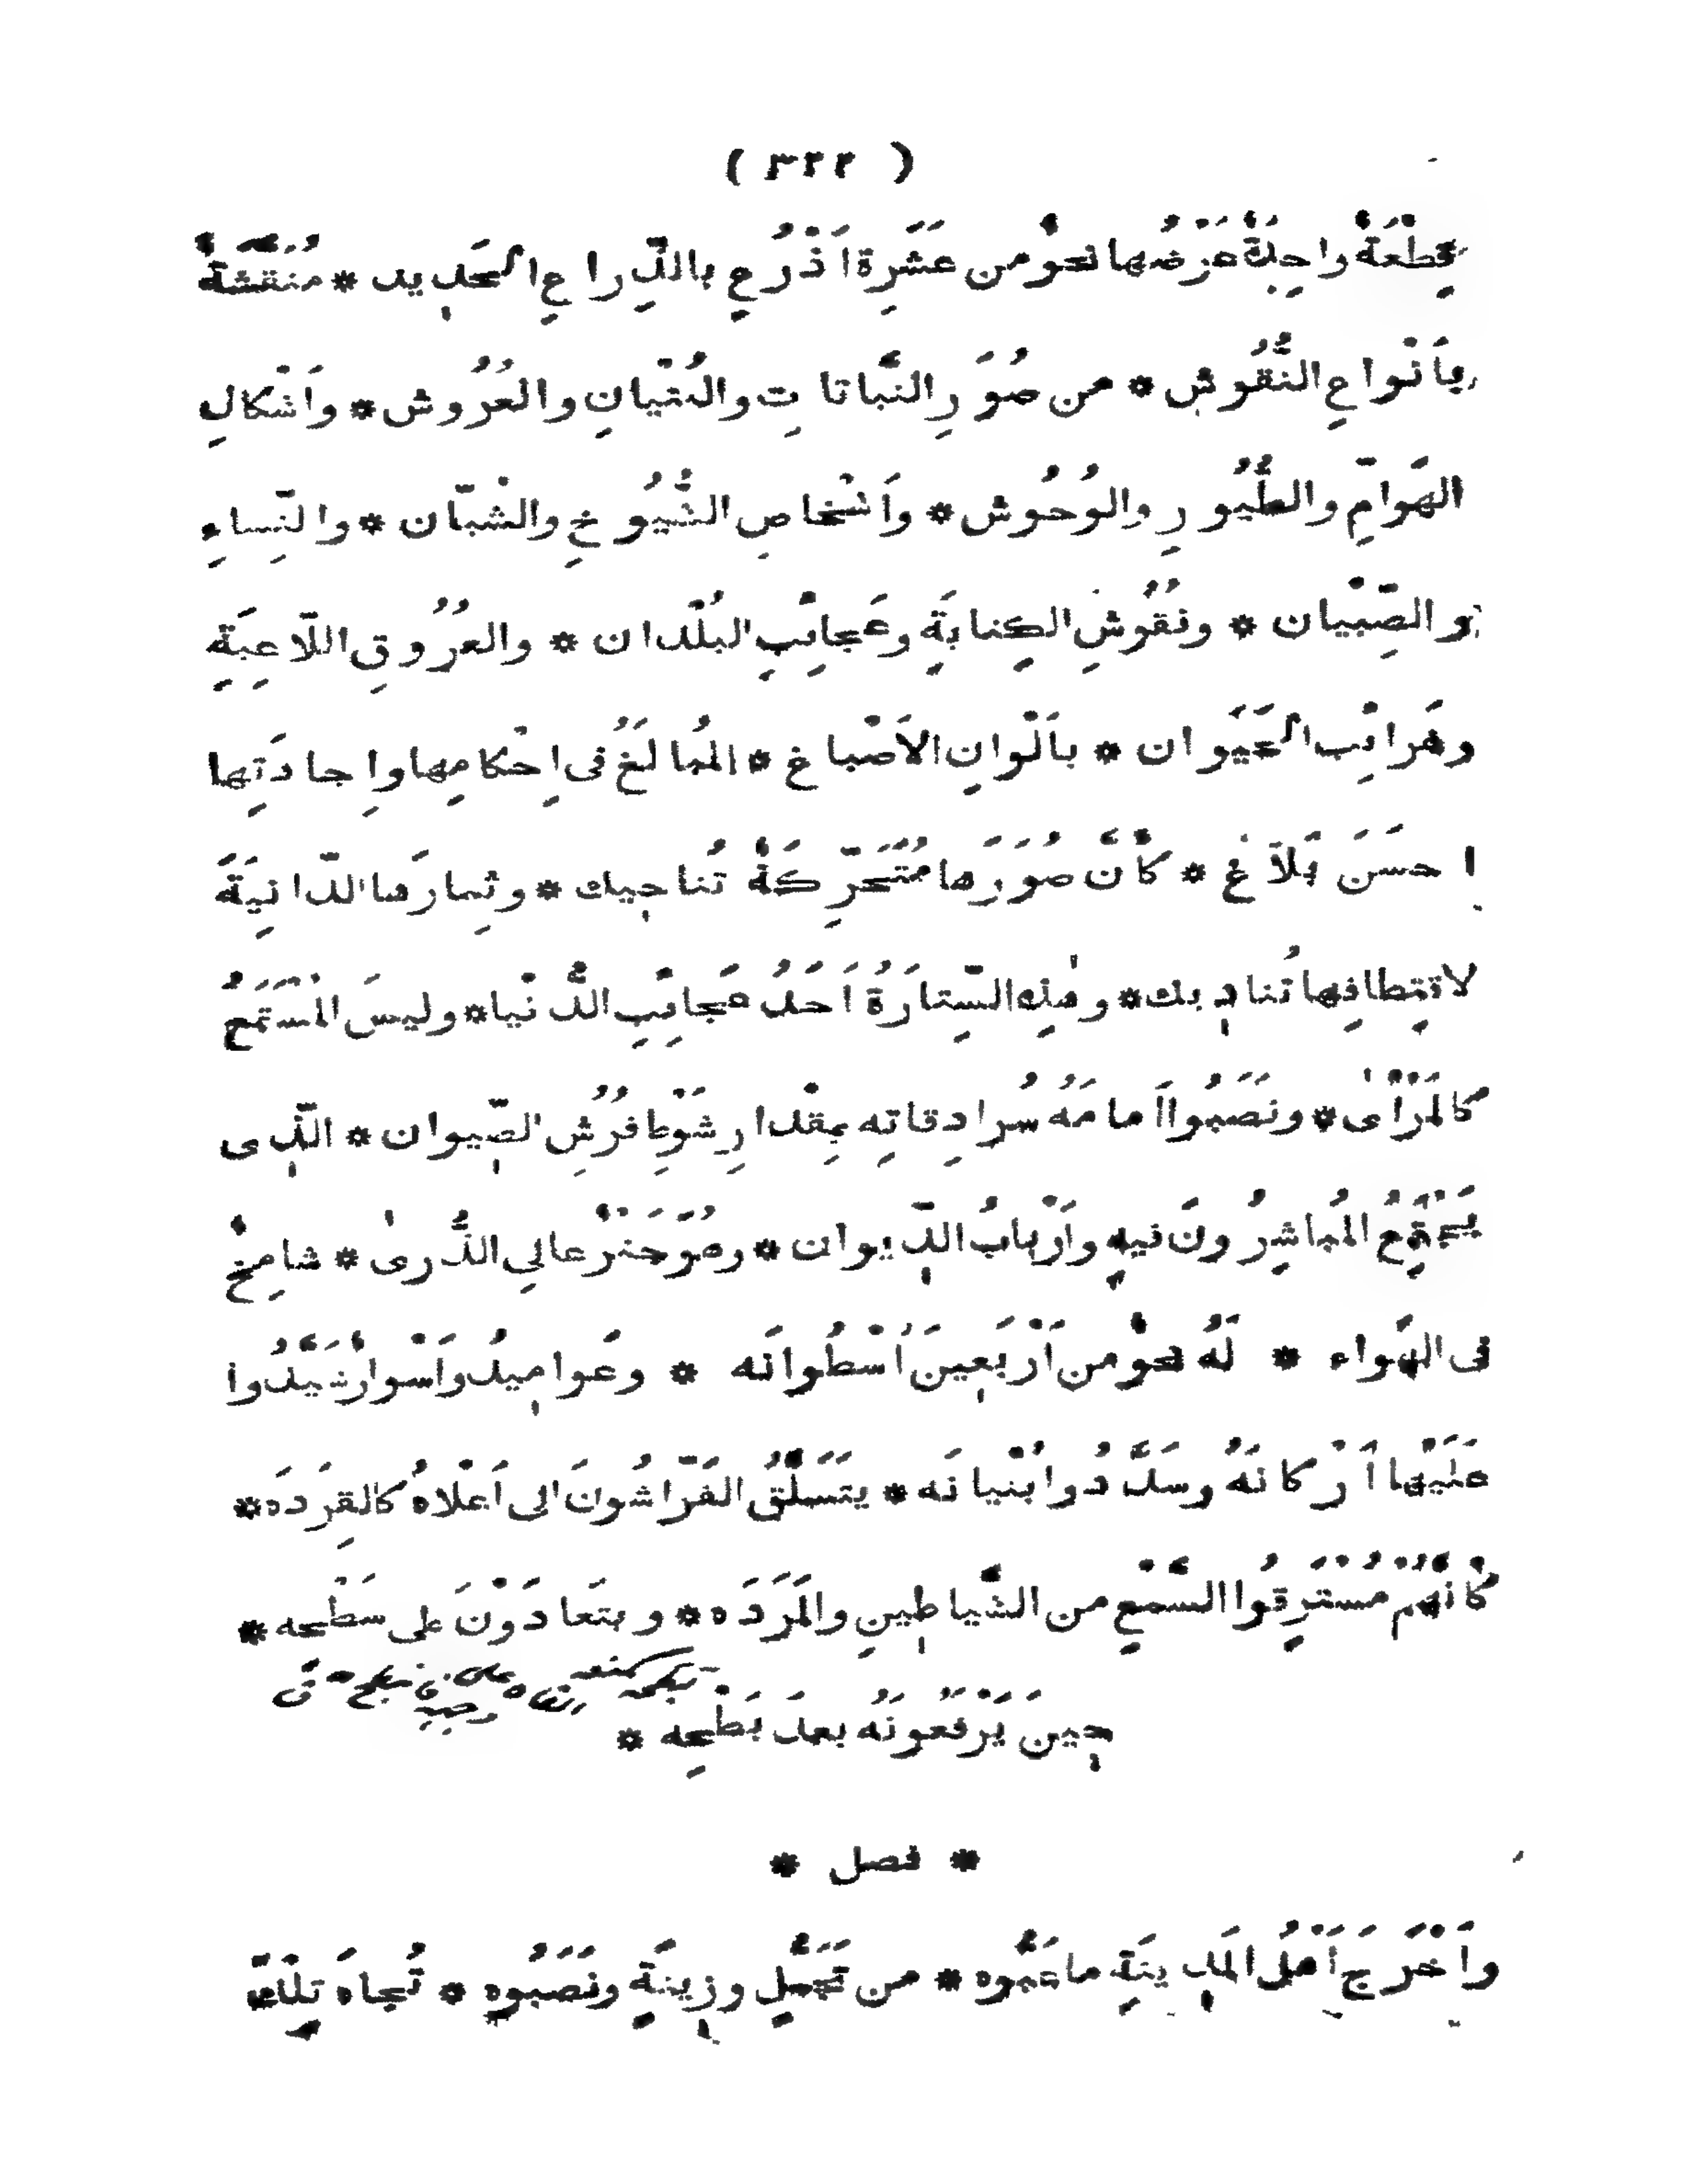 ( ٣٢٢ )
قِطْعَةٌ واحِدَةٌ عَرْضُها نَحْوٌ من عَشَرِةِ اَذْرُعٍ بالذِّراعِ الحَدِيد * مُنَقَّشَةٌ
بأَنْواعِ النُّقُوشِ * من صُوَرِ النَّباتاتِ والبُنْيانِ والعُرُوش * وَاَشْكالِ
الهَوامِّ والطُّيُورِ والوُحُوش * واَشْخاصِ الشُّيُوخِ والشُّبّان * والنِّساءِ
والصِّبْيان * ونُقُوشِ الكِتابَةِ وعَجائِبِ البُلْدان * والعُرُوقِ اللّاعِبَةِ
وغَرائِب الحَيَوان * بأَلْوانِ الأَصْباغ * المُبالَغُ فى اِحْكامِها واِجادَتِها
اَحسَنَ بَلاَغ * كأَنَّ صُوَرَها مُتَحَرِّكَةٌ تُناجِيك * وثِمارَها الدّانِيَةَ
لاقتِطافِها تُنادِيك * وهٰذِهِ السِّتارَةُ اَحَدُ عَجائِبِ الدُّنْيا * وليسَ المُسْتَمِعُ
كالمَرْأٰى * ونَصَبُوا اَمامَهُ سُرادِقاتِه بمِقْدارِ شَوْطِ فَرَسٍ الصِّيوان * الَّذِى
يَجْتَمِعُ المُباشِرُونَ فيهِ واَرْبابُ الدِّيوان * وهُوَ جَتْرٌ عالِي الذُّرىٰ * شامِخٌ
فى الهَواء * لَهُ نَحْوٌ من اَرْبَعِينَ اُسْطُوانَه * وعَوامِيدُ واَسْوارٌ شَيَّدُوا
عَلَيْها اَرْكانَهُ وسَدَّدُوا بُنْيانَه * يَتَسَلَّقُ الفَرّاشُونَ الى اَعْلاهُ كالقِرَدَه *
كأنَّهُمْ مُسْتَرِقُوا السَّمْعِ من الشَّياطِينِ والمَرَدَه * ويتَعادَوْنَ على سَطْحِه *
حِينَ يَرْفَعُونَهُ بعدَ بَطْحِه *
* فصل *
واَخْرَجَ اَهلُ المَدِينَةِ ماعَبُّوه * من تَجَمُّلٍ وزِينَةٍ ونَصَبُوه * تُجاهَ تِلْكَ